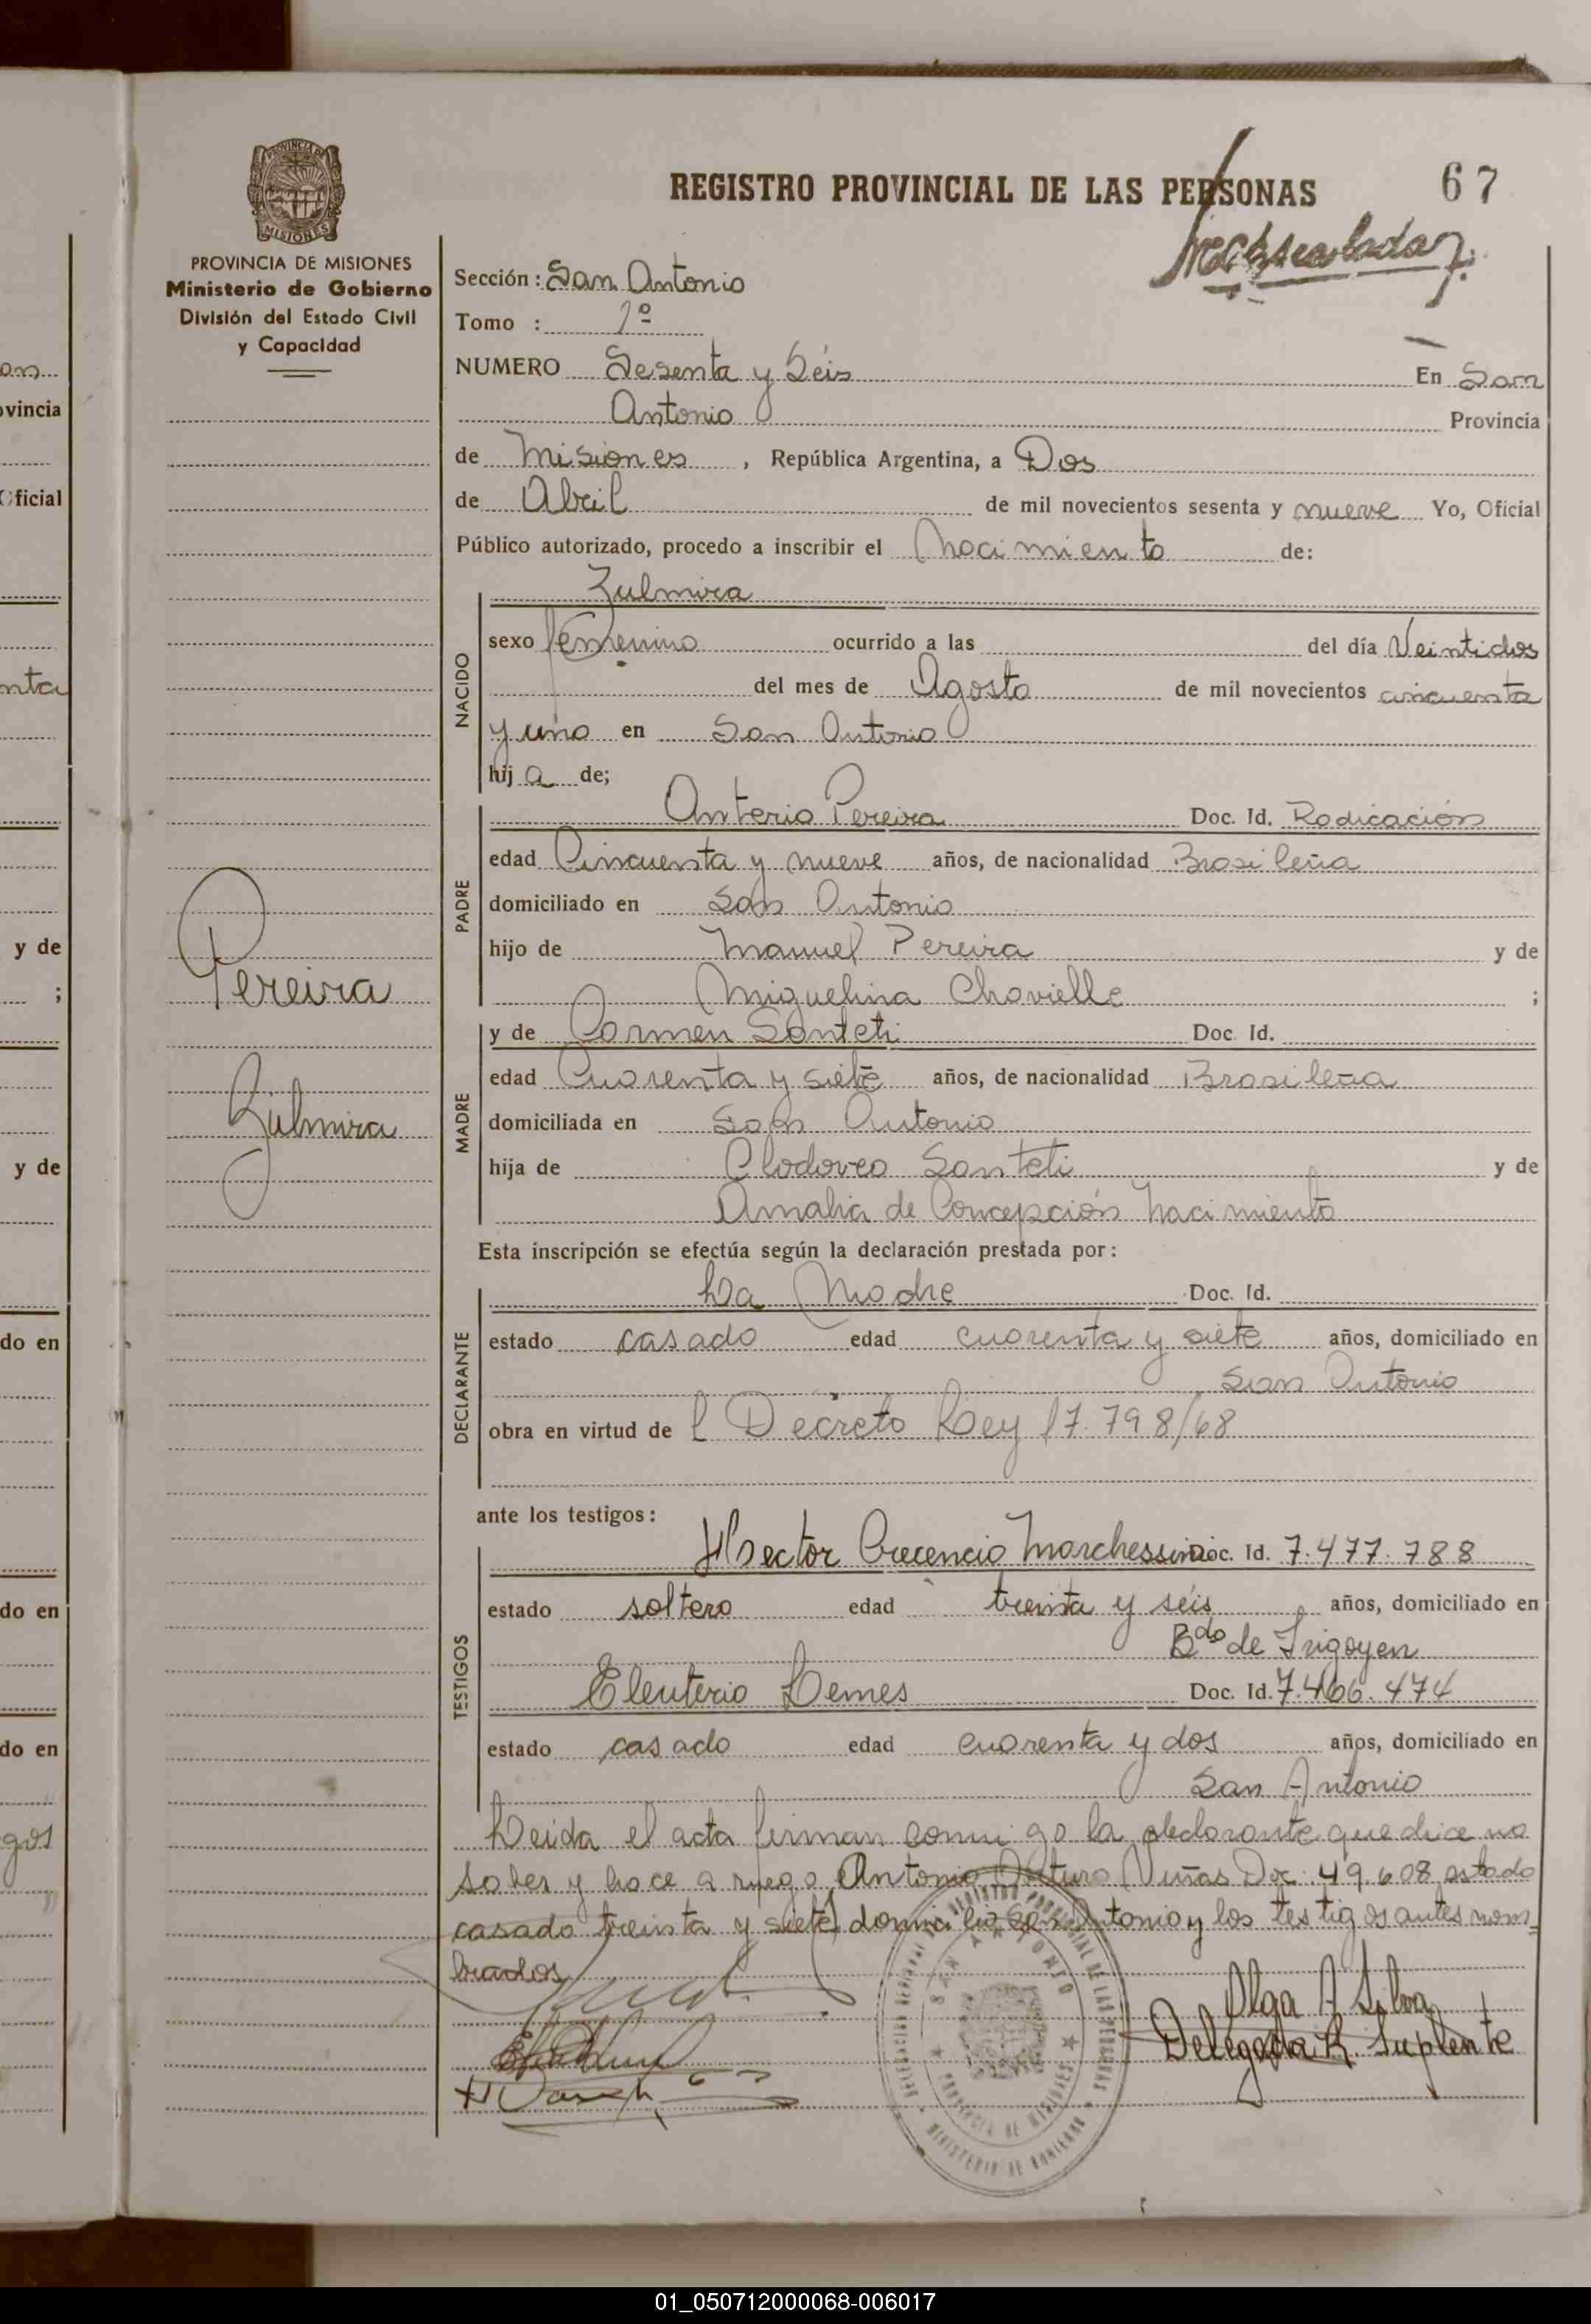 67
REGISTRO PROVINCIAL DE LAS PERSONAS
PROVINCIA DE MISIONES
Ministerio de Gobierno
División del Estado Civil
y Capacidad
Sección: San Antonio
Tomo : 1º
NUMERO Sesenta y Séis En San
Antonio Provincia
de Misiones, República Argentina, a Dos
de Abril de mil novecientos sesenta y nueve Yo, Oficial
Público autorizado, procedo a inscribir el Nacimiento de:
NACIDO
Zulmira
sexo femenino ocurrido a las del día Veintidos
del mes de Agosto de mil novecientos cincuenta
y uno en San Antonio
hij a de;
PADRE
Anterio Pereira Doc. Id. Radicación
edad Cincuenta y nueve años, de nacionalidad Brasileña
domiciliado en San Antonio
hijo de Manuel Pereira y de
Miguelina Chovielle ;
MADRE
y de Carmen Santeti Doc. Id.
edad Cuarenta y siete años, de nacionalidad Brasileña
domiciliada en San Antonio
hija de Clodoveo Santeti y de
Amalia de Concepción Nacimiento
Pereira
Zulmira
Esta inscripción se efectúa según la declaración prestada por:
DECLARANTE
La Madre Doc. Id.
estado casado edad cuarenta y siete años, domiciliado en
San Antonio
obra en virtud de l Decreto Ley 17.798/68
ante los testigos:
TESTIGOS
Hector Crecencio Marchessini Doc. Id. 7.477.788
estado soltero edad treinta y séis años, domiciliado en
Bdo de Irigoyen
Eleuterio Lemes Doc. Id. 7.466.474
estado casado edad cuarenta y dos años, domiciliado en
San Antonio
Leida el acta firman conmigo la declarante que dice no
saber y hace a ruego Antonio Arturo Viñas Doc: 49.608 estado
casado treinta y siete domicilio San Antonio y los testigos antes nom-
brados
Olga A Silva
Delegada R. Suplente
SAN ANTONIO
PROVINCIA DE MISIONES
MINISTERIO DE GOBIERNO
an
ovincia
Oficial
nta
y de
;
y de
do en
do en
do en
gos
01_050712000068-006017